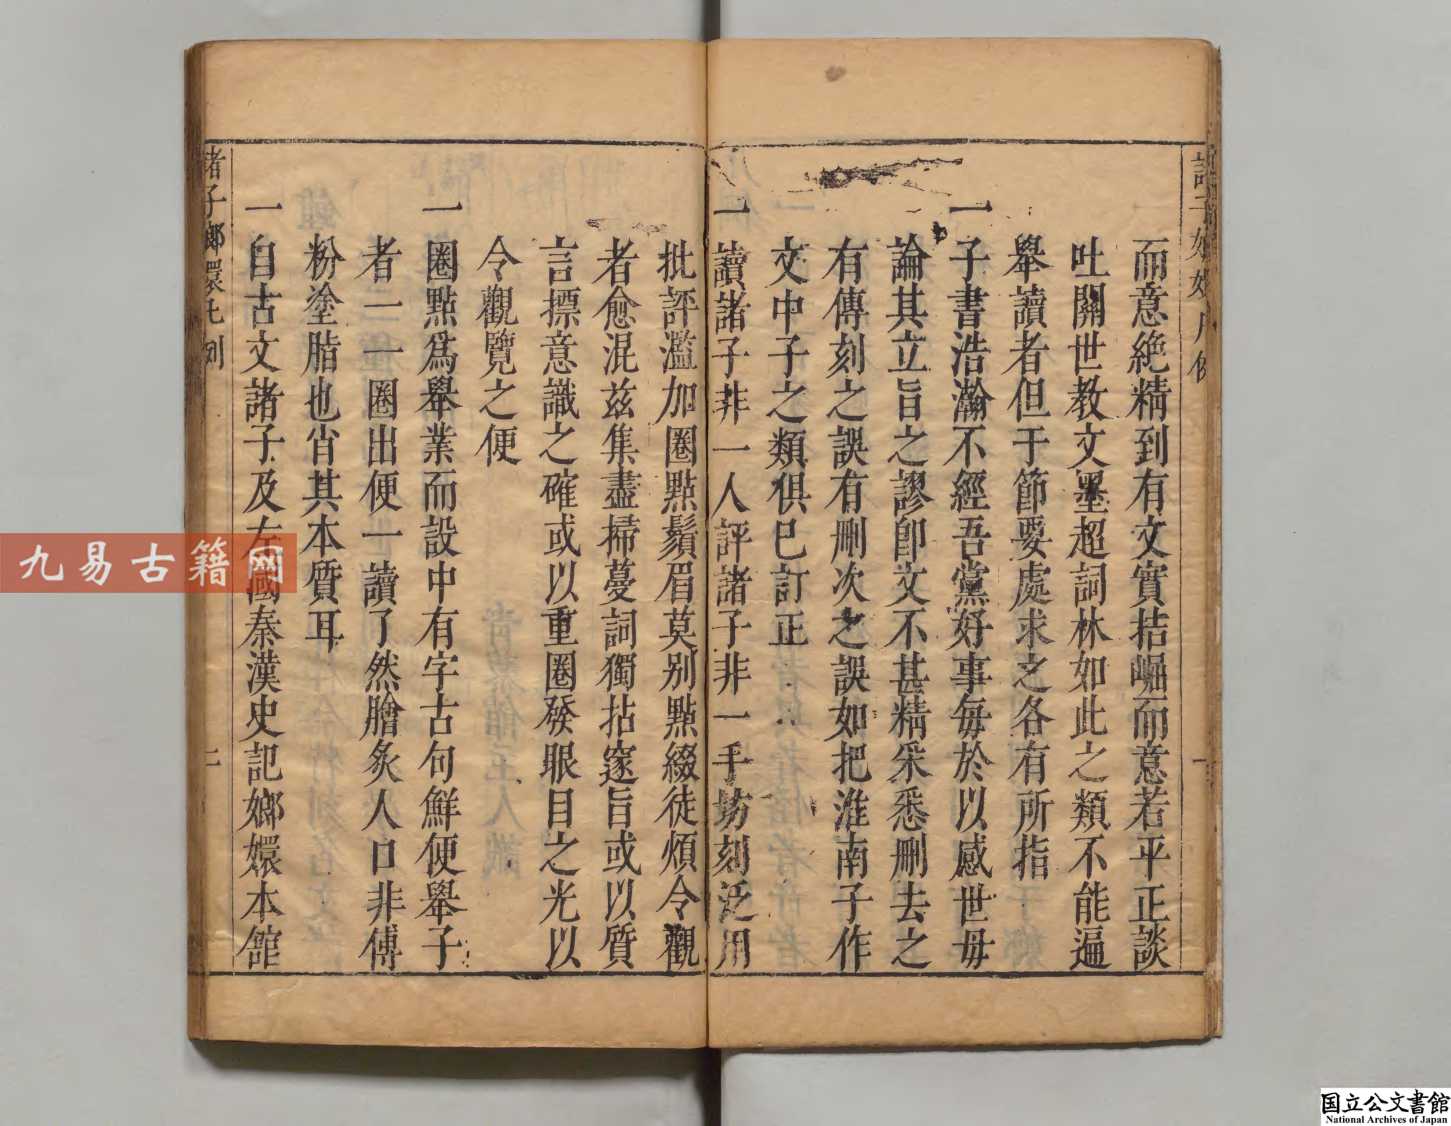 而意絶精到有文實拮崛而意若平正談
吐關世教文墨超詞林如此之類不能遍
舉讀者但于節要處求之各有所指
一子書浩瀚不經吾黨好事毎於以感世毋
論其立旨之謬卽文不甚精采悉刪去之
有傳刻之誤有刪次之誤如把淮南子作
文中子之類俱巳訂正
一讀諸子非一人評諸子非一手坊刻泛用
批評濫加圈點鬚眉莫别點綴徒煩令觀
者愈混兹集盡掃蔓詞獨拈邃旨或以質
言摽意識之確或以重圈發眼目之光以
令觀覽之便
一圈點爲舉業而設中有字古句鮮便舉子
者一一圈出便一讀了然膾炙人口非傅
粉塗脂也肖其本質耳
一自古文諸子及左國秦漢史記嫏嬛本舘
諸子嫏嬛凡例
二
九易古籍网
国立公文書館
National Archives of Japan